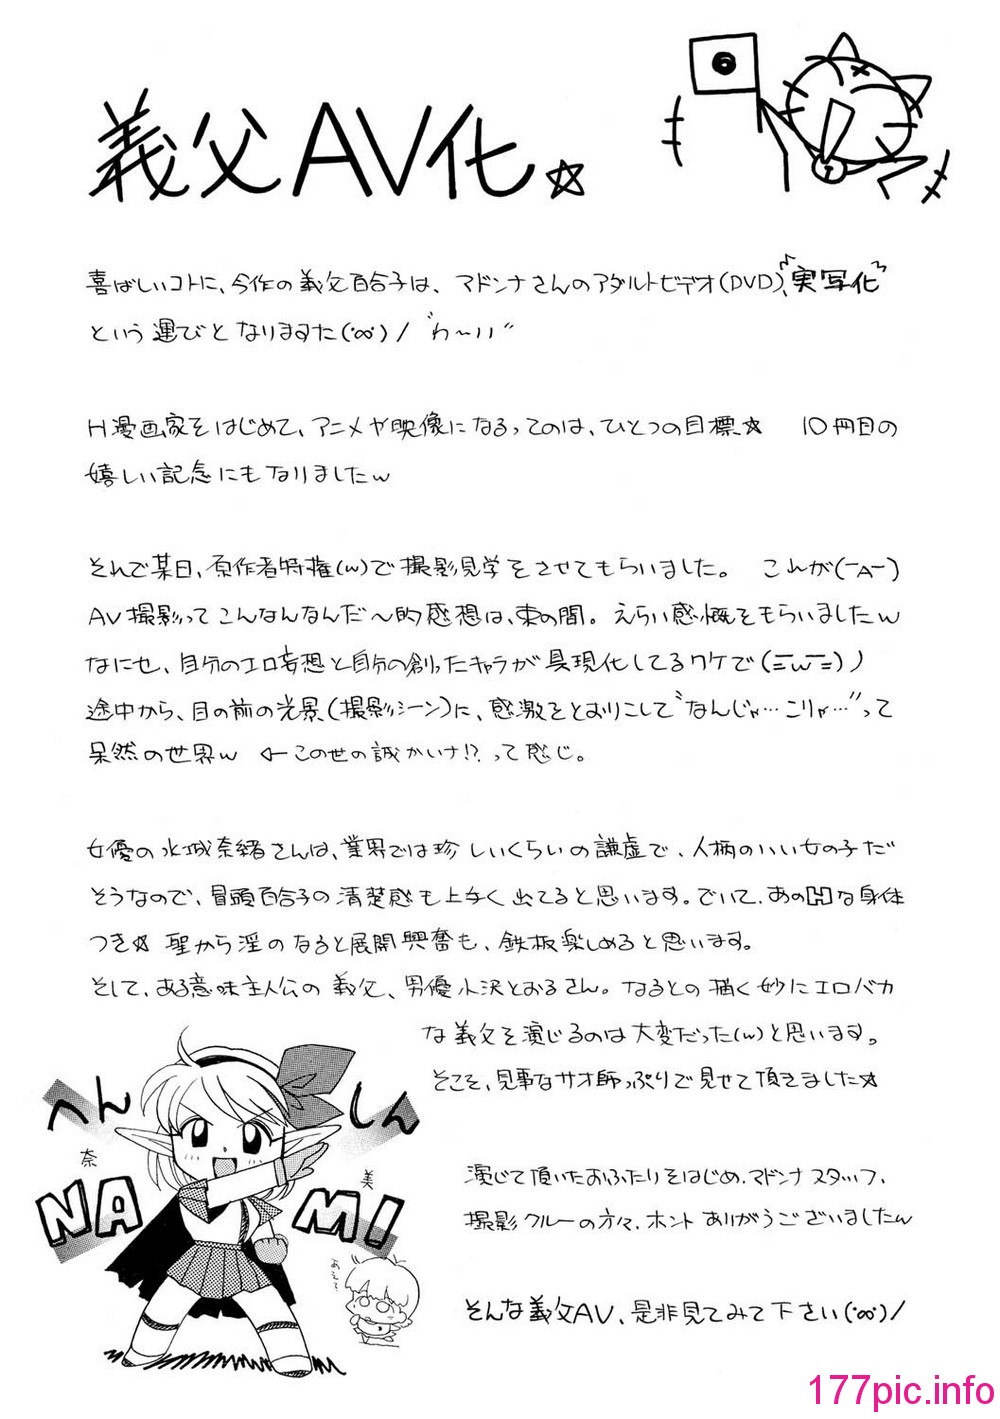 義父AV化☆
喜ばしいコトに、今作の義父百合子は、マドンナさんのアダルトビデオ(DVD)、実写化
という運びとなりますた(°∞°)/ わ〜い"
H漫画家をはじめて、アニメや映像になるってのは、ひとつの目標☆ 10冊目の
嬉しい記念にもなりましたw
それで某日、原作者特権(w)で撮影見学をさせてもらいました。 これが(ーAー)
AV撮影ってこんなんなんだ〜的感想は、束の間。えらい感慨をもらいましたw
なにせ、自分のエロ妄想と自分の創ったキャラが具現化してるワケで(ニwニ)ノ
途中から、目の前の光景(撮影シーン)に、感激をとおりこして"なんじゃ…こりゃ…"って
呆然の世界w ←この世の誠かいナ!?って感じ。
女優の水城奈緒さんは、業界では珍しいくらいの謙虚で、人柄のいい女の子だ
そうなので、冒頭百合子の清楚感も上手く出てると思います。でいて、あのHな身体
つき☆ 聖から淫のなると展開興奮も、鉄板楽しめると思います。
そして、ある意味主人公の義父、男優小沢とおるさん。なるとの描く妙にエロバカ
な義父を演じるのは大変だった(w)と思います。
そこそ、見事なサオ師っぷりで見せて頂きました☆
へんしん
奈 美
NAMI
演じて頂いたおふたりをはじめ、マドンナスタッフ、
撮影クルーの方々、ホントありがうございましたw
そんな義父AV、是非見てみて下さい(°∞°)/
177pic.info